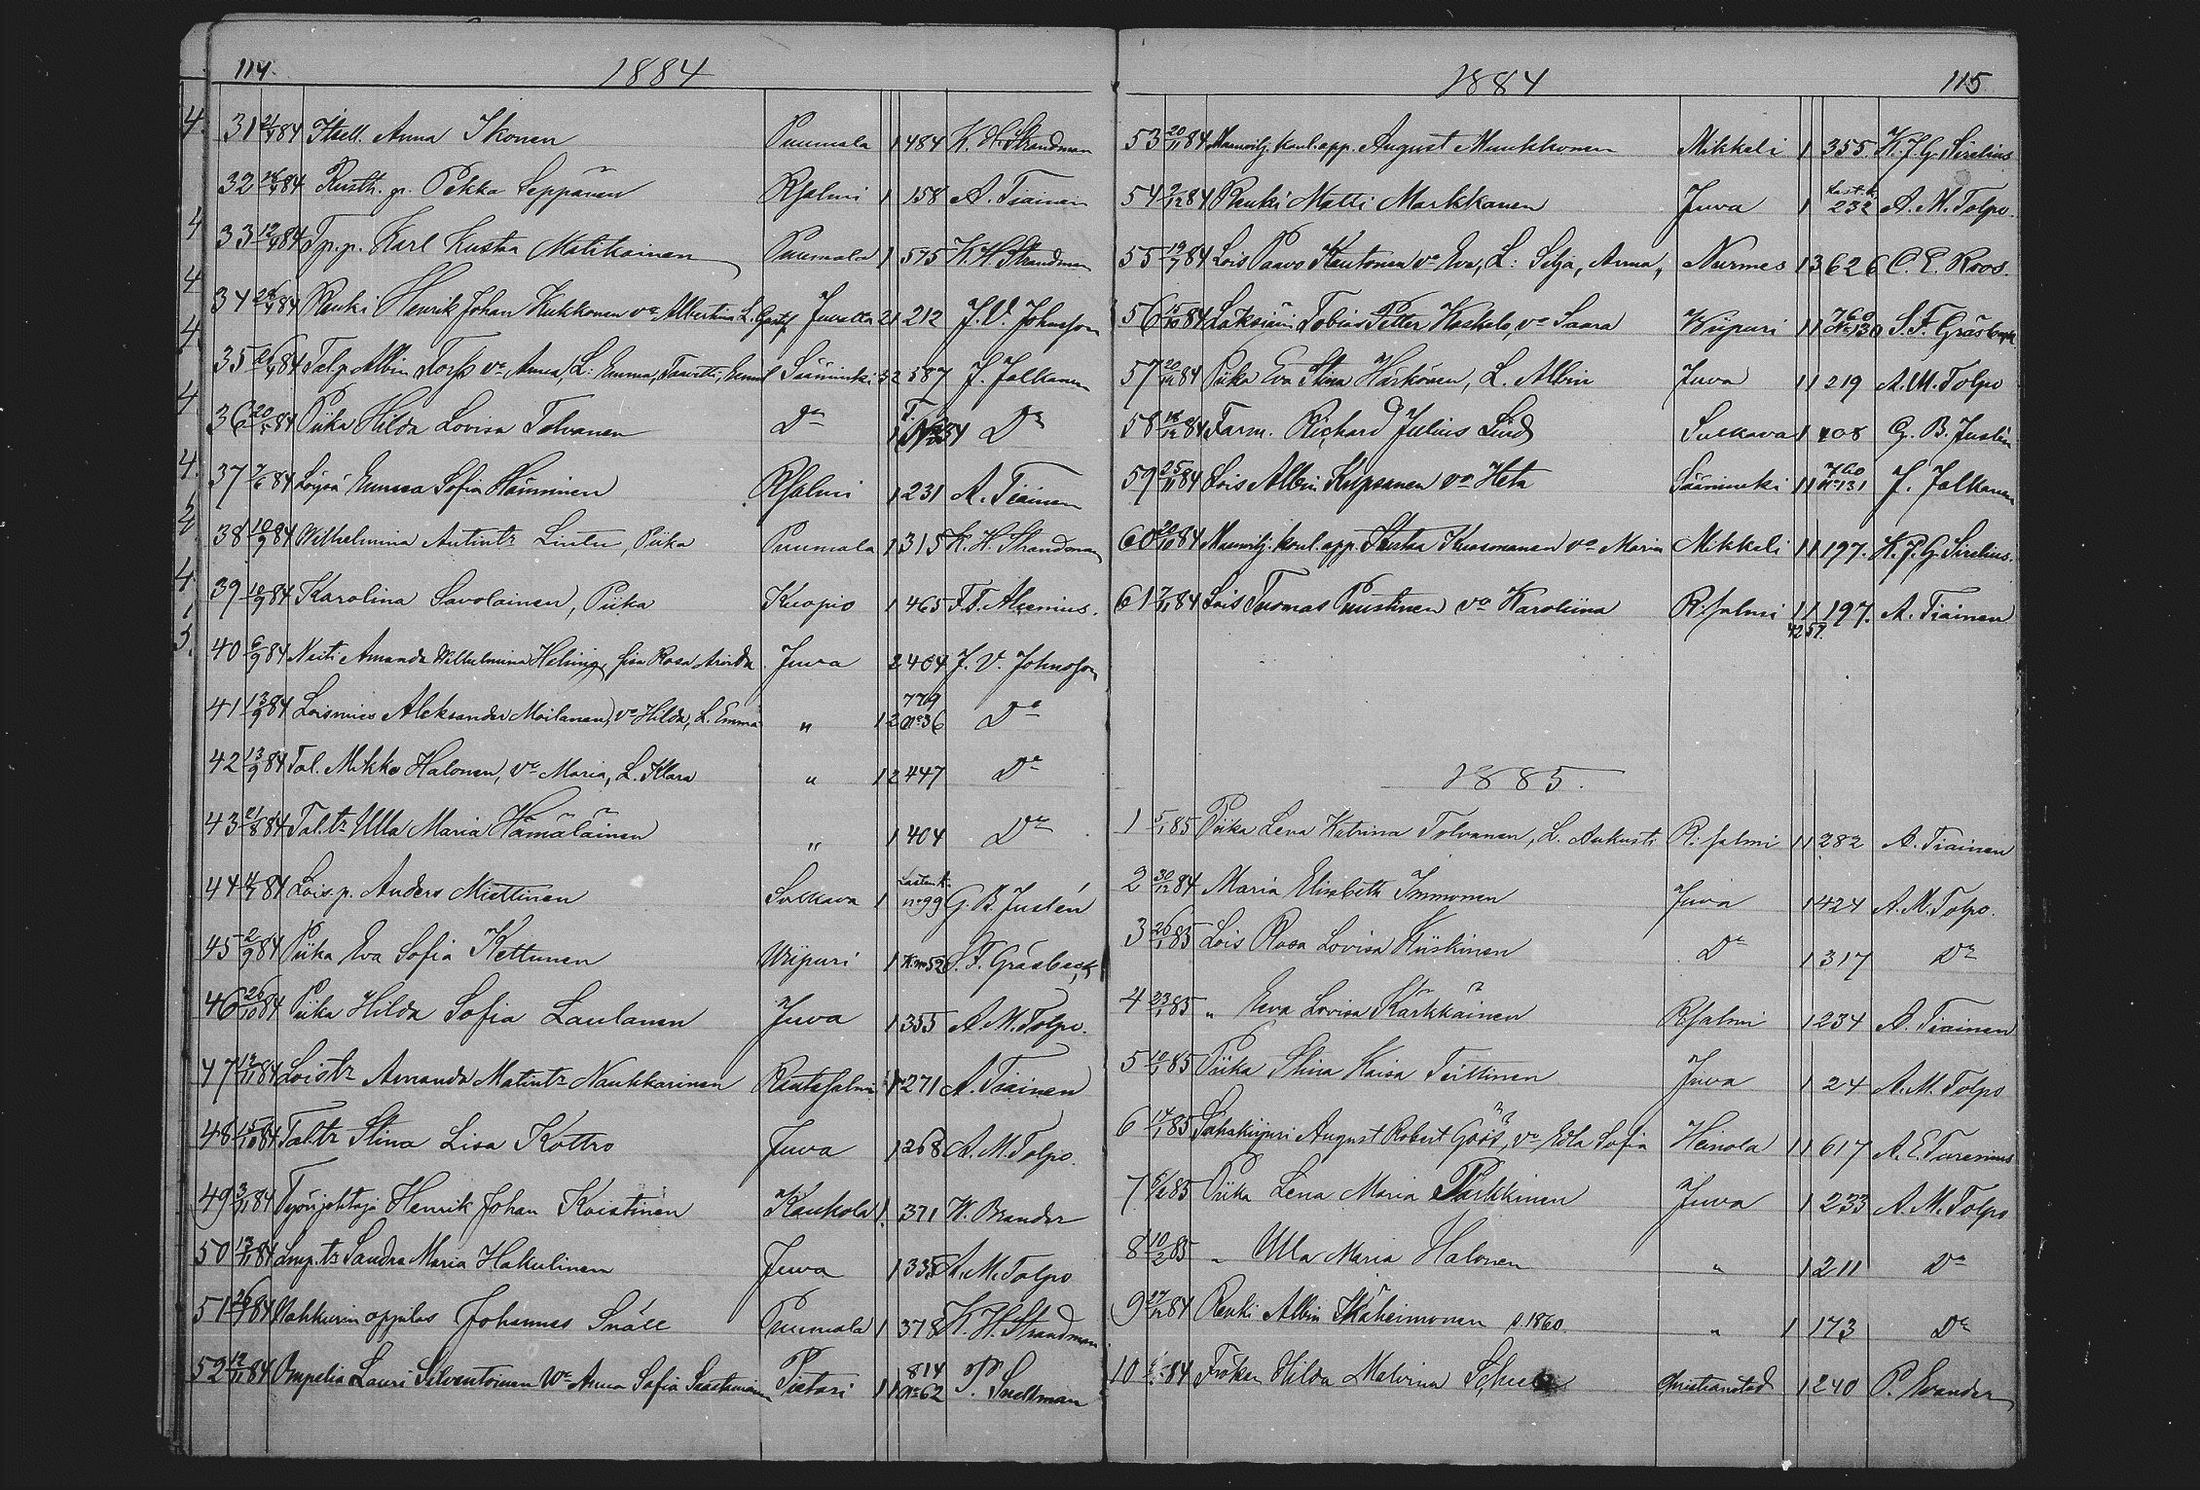 114. 1884
31 84 Itsell. Anna Ikonen Puumala 1 484 K. H. Strandman
32 84 Rusth. Pekka Seppänen R:salmi 1 158 A. Tiainen
33 12/4 84 Tp.p. Karl Kustaa Matikainen Puumala 1 575 K. H. Strandman
34 84 Renki Henrik Johan Kukkonen va Albertina L. Juvalta 21 212 J. V. Johnsson
35 84 Tal.p. Albin va Anna, L: Emma, Taavetti, Sääminki 32 587 J. Jalkanen
36 84 Piika Hilda Lovisa Tolvanen Do 1 Do
37 84 Löysä Emma Sofia Hämminen R:salmi 1 231 A. Tiainen
38 10/9 84 Wilhelmina Antintr Lintu, Piika Puumala 1 315 K. H. Strandman
39 10/9 84 Karolina Savolainen, Piika Kuopio 1 465 F. F. Alcenius.
40 84 Neiti Amanda Wilhelmina Juva 2 404 J. V. Johnsson
41 13/9 84 Loismies Aleksander Moilanen, va Hilda, L. Emma „ 12 No 36 Do
42 13/9 84 Tal. Mikko Halonen, va Maria, L. Klara „ 12 447 Do
43 84 Tal.tr Ulla Maria Hämäläinen „ 1 404 Do
44 84 Lois.p. Anders Miettinen Sulkava 1 no 99 G. B. Juslén
45 2/9 84 Piika Eva Sofia Kettunen Wiipuri 1 52 S. F. Gråsbeck
46 26/10 84 Piika Hilda Sofia Laulanen Juva 1 355 A. M. Tolpo.
47 84 Loistr Amanda Matintr Naukkarinen Rautasalmi 1 271 A. Tiainen
48 15/10 84 Tal.tr Stina Lisa Kottro Juva 1 268 A. M. Tolpo.
49 3/11 84 Työnjohtaja Henrik Johan Koistinen Kaukola 1. 371 W. Brander
50 13/11 84 Lmp.tr Sandra Maria Hakulinen Juva 1 335 A. M. Tolpo
51 84 Nahkurin oppilas Johannes Snäll Puumala 1 378 K. H. Strandman
52 84 Ompelia Lauri Silventoinen Wo Anna Sofia Pietari 11 814 No 62
1884 115.
53 20/11 84 Maanvilj. koul. opp. August Munkkonen Mikkeli 1 355 K. J. G. Sirelius
54 2/12 84 Renki Matti Markkanen Juva 1 232 A. M. Tolpo.
55 84 Lois Paavo Kautonen va Eva, L: Selja, Anna, Nurmes 13 626 C. E. Roos.
56 84 Läksiäin Tobias Petter Koskelo, va Saara Wiipuri 11 760 S. F. Gråsbeck
57 84 Piika Eva Stina Härkönen, L. Albin Juva 11 219 A. M. Tolpo
58 84 Farm. Richard Julius Lind Sulkava 1 408 G. B. Juslén
59 25/11 84 Lois Albin Kupiainen va Heta Sääminki 11 760 No 131 J. Jalkanen
60 20/10 84 Maanvilj. koul. opp. Kustaa Kuosmanen va Maria Mikkeli 11 197. K. J. G. Sirelius.
61 84 Lois Tuomas Puustinen va Karoliina R:salmi 11 197. A. Tiainen
42 57.
1885.
1 5/1 85 Piika Lena Katrina Tolvanen, L. Aukusti R:salmi 11 282 A. Tiainen
2 30/12 84 Maria Elisabeth Immonen Juva 1 424 A. M. Tolpo.
3 26/1 85 Lois Rosa Lovisa Kiiskinen Do 1 317 Do
4 23/1 85 „ Eeva Lovisa Kärkkäinen R:salmi 1 234 A. Tiainen
5 10/1 85 Piika Stina Kaisa Teittinen Juva 1 24 A. M. Tolpo
6 17/1 85 August Robert Göös, va Edla Sofia Heinola 11 617 A. E. Turenius
7 6/2 85 Piika Lena Maria Parkkinen Juva 1 233 A. M. Tolpo
8 10/2 85 „ Ulla Maria Halonen „ 1 211 Do
9 27/12 84 Renki Albin Ikäheimonen s. 1860. „ 1 173 Do
10 84 Fröken Hilda Malvina Christianstad 1 240 P. Evander